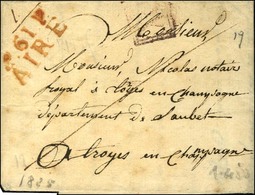 P.61.P.
AIRE
Monsieur
19
Monsieur Nicolas notaire
royal à Torges en Champagne
département de Laubet
A troyes en Champagne
1825